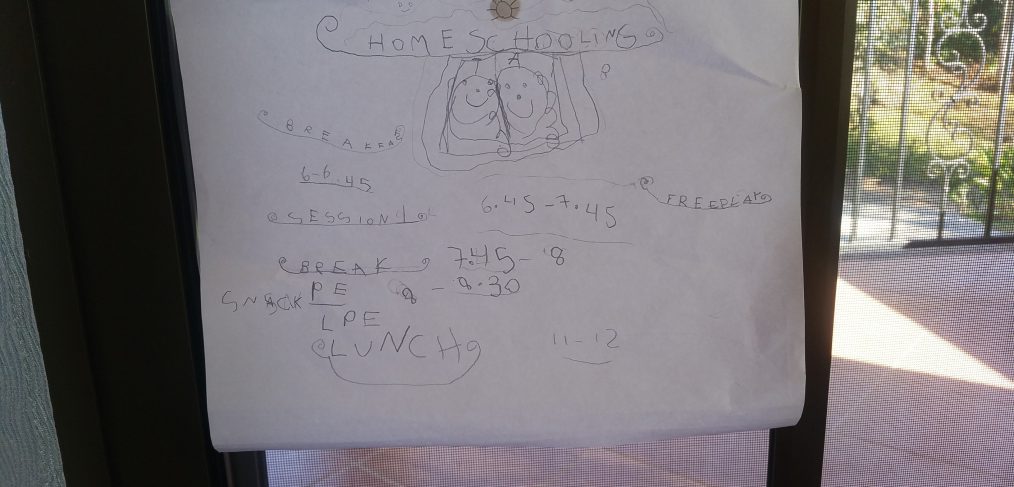 HOMESCHOOLING
8
BREAKFAS
6-6.45
6.45-7.45
FREEPLAY
SESSION 1
BREAK 7.45-8
SNACK PE 8-8.30
LPE
LUNCH 11-12